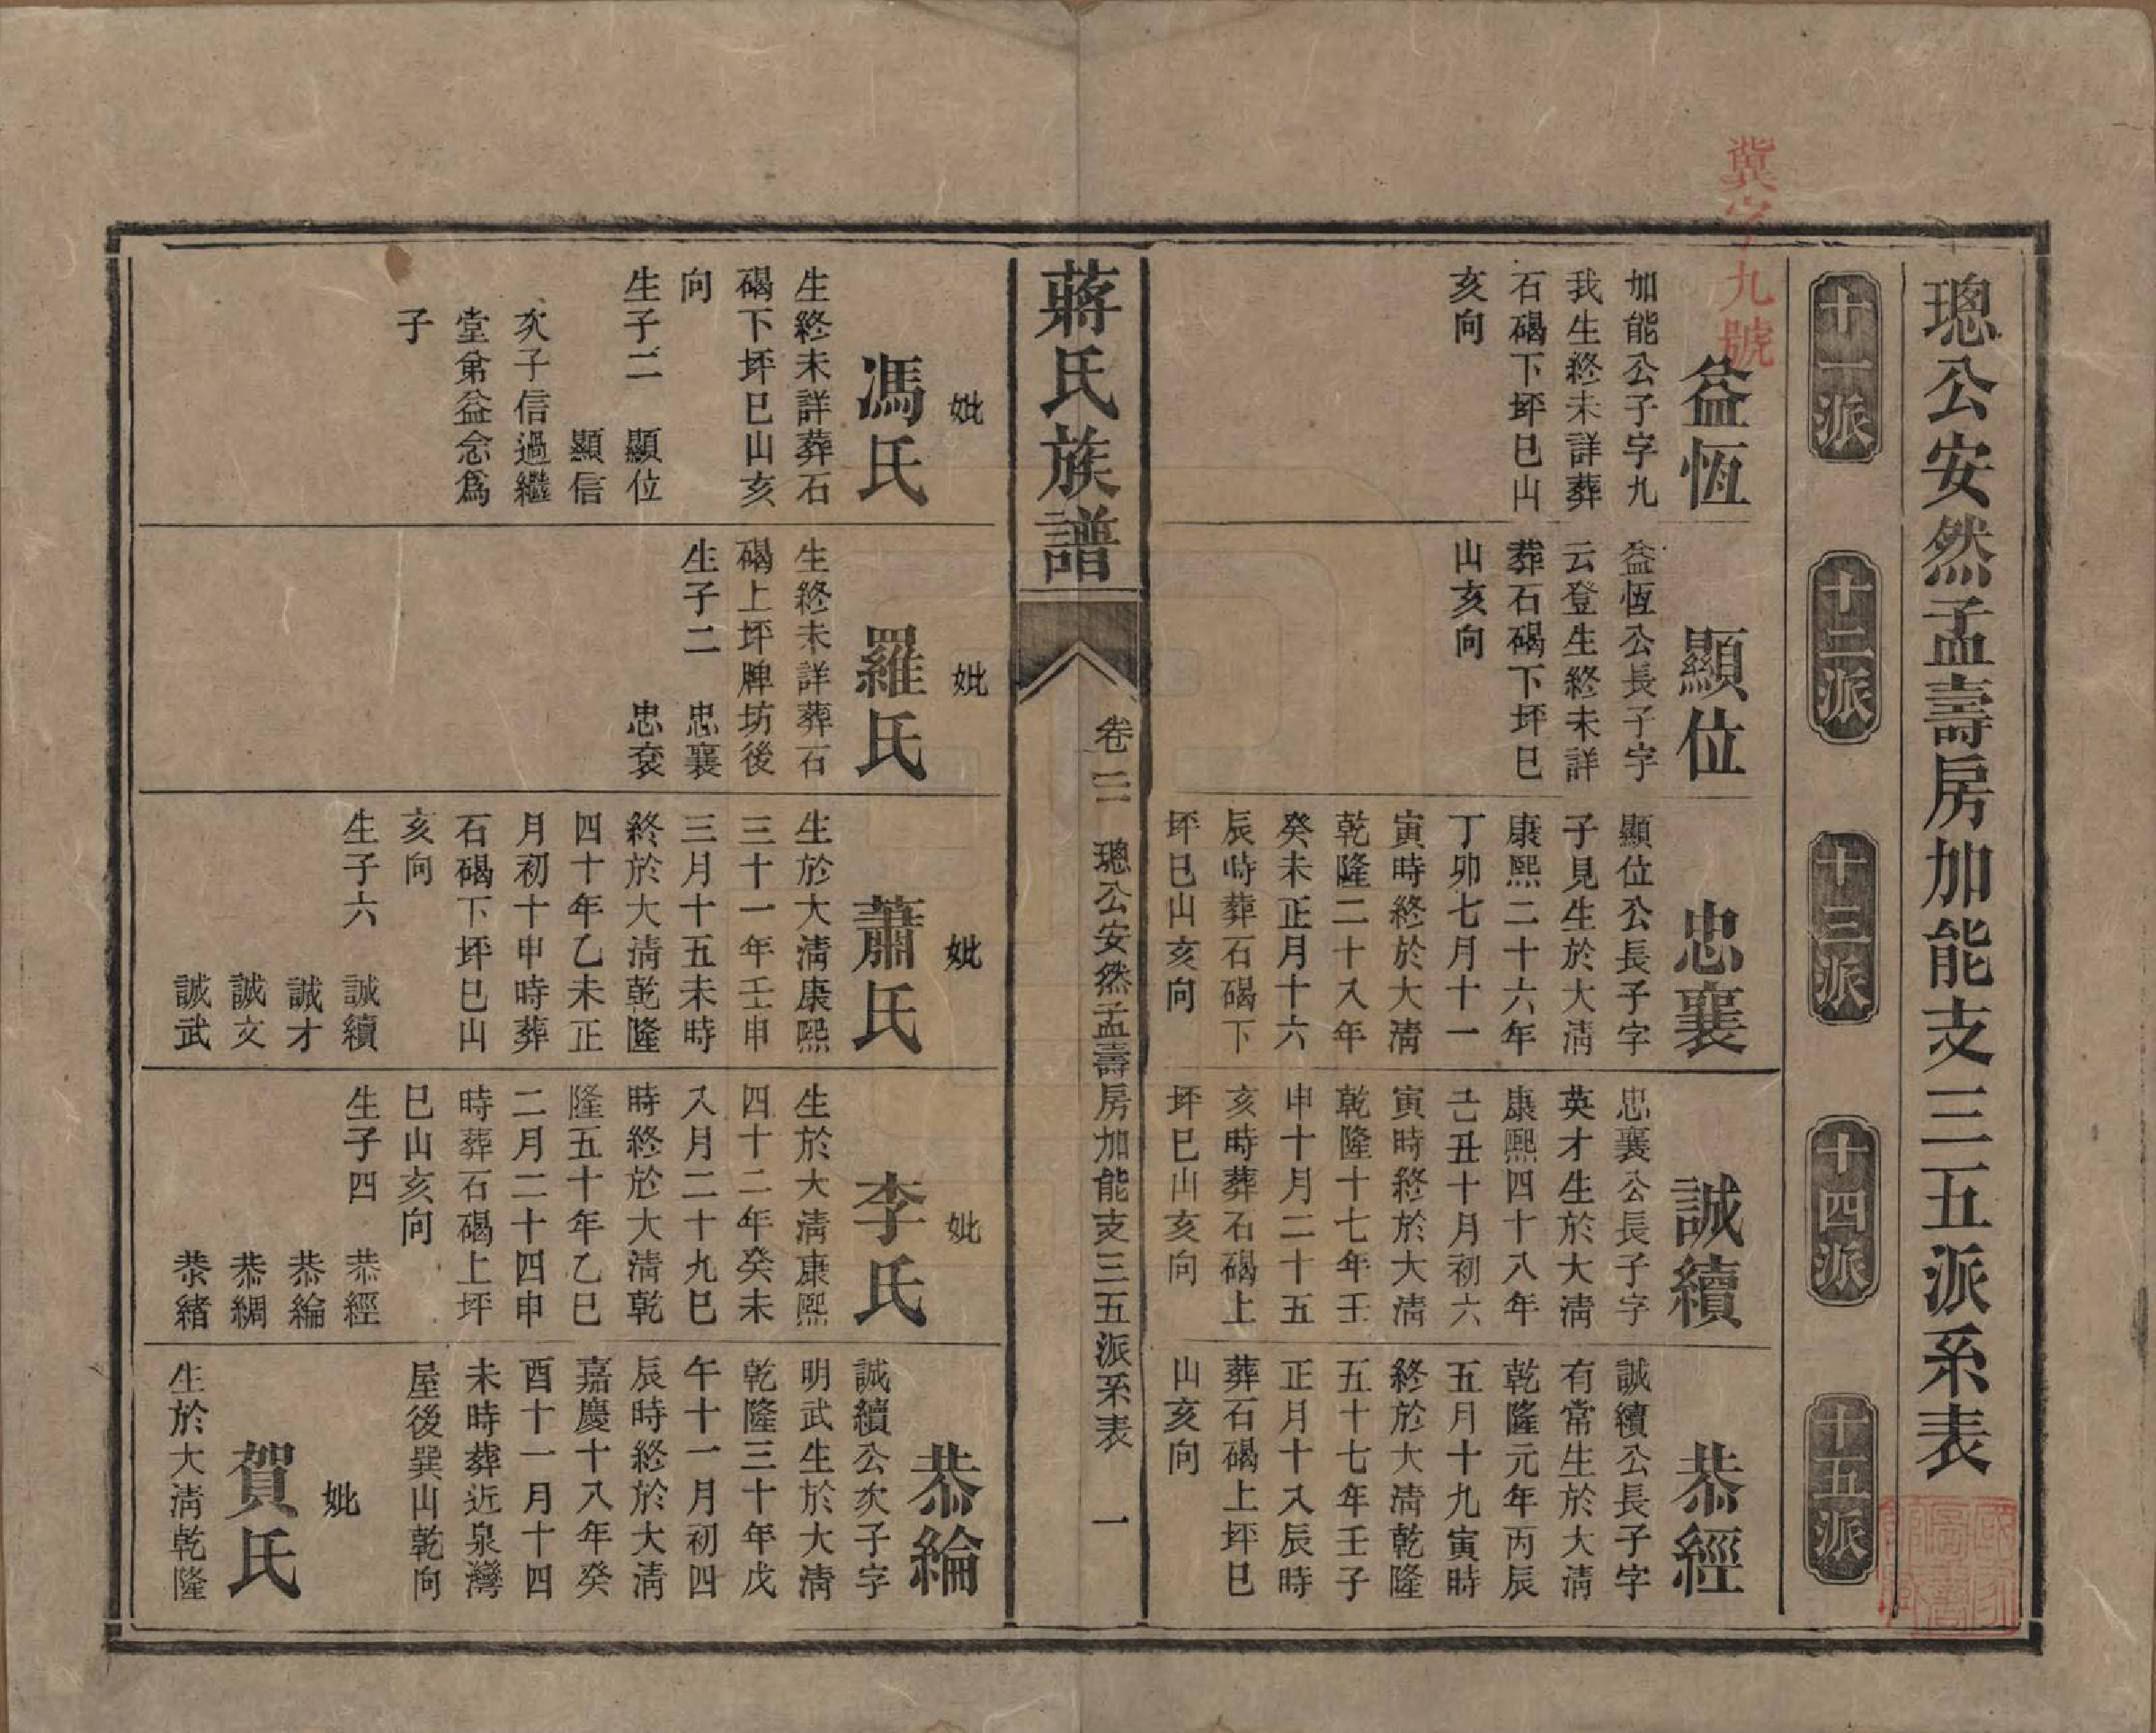 冀字九號
璁公安然孟壽房加能支三五派系表
十一派
十二派
十三派
十四派
十五派
益恆
加能公子字九
我生終未詳葬
石碣下坪巳山
亥向
顯位
益恆公長子字
云登生終未詳
葬石碣下坪巳
山亥向
忠襄
顯位公長子字
子見生於大淸
康熙二十六年
丁卯七月十一
寅時終於大淸
乾隆二十八年
癸未正月十六
辰時葬石碣下
坪巳山亥向
誠續
忠襄公長子字
英才生於大淸
康熙四十八年
己丑十月初六
寅時終於大淸
乾隆十七年壬
申十月二十五
亥時葬石碣上
坪巳山亥向
恭經
誠續公長子字
有常生於大淸
乾隆元年丙辰
五月十九寅時
終於大淸乾隆
五十七年壬子
正月十八辰時
葬石碣上坪巳
山亥向
蔣氏族譜
卷二 璁公安然孟壽房加能支三五派系表 一
妣
馮氏
生終未詳葬石
碣下坪巳山亥
向
生子二 顯位
顯信
次子信過繼
堂弟益念爲
子
妣
羅氏
生終未詳葬石
碣上坪牌坊後
生子二 忠襄
忠袞
妣
蕭氏
生於大淸康熙
三十一年壬申
三月十五未時
終於大淸乾隆
四十年乙未正
月初十申時葬
石碣下坪巳山
亥向
生子六 誠續
誠才
誠文
誠武
妣
李氏
生於大淸康熙
四十二年癸未
八月二十九巳
時終於大淸乾
隆五十年乙巳
二月二十四申
時葬石碣上坪
巳山亥向
生子四 恭經
恭綸
恭綢
恭緒
恭綸
誠續公次子字
明武生於大淸
乾隆三十年戊
午十一月初四
辰時終於大淸
嘉慶十八年癸
酉十一月十四
未時葬近泉灣
屋後巽山乾向
妣
賀氏
生於大淸乾隆